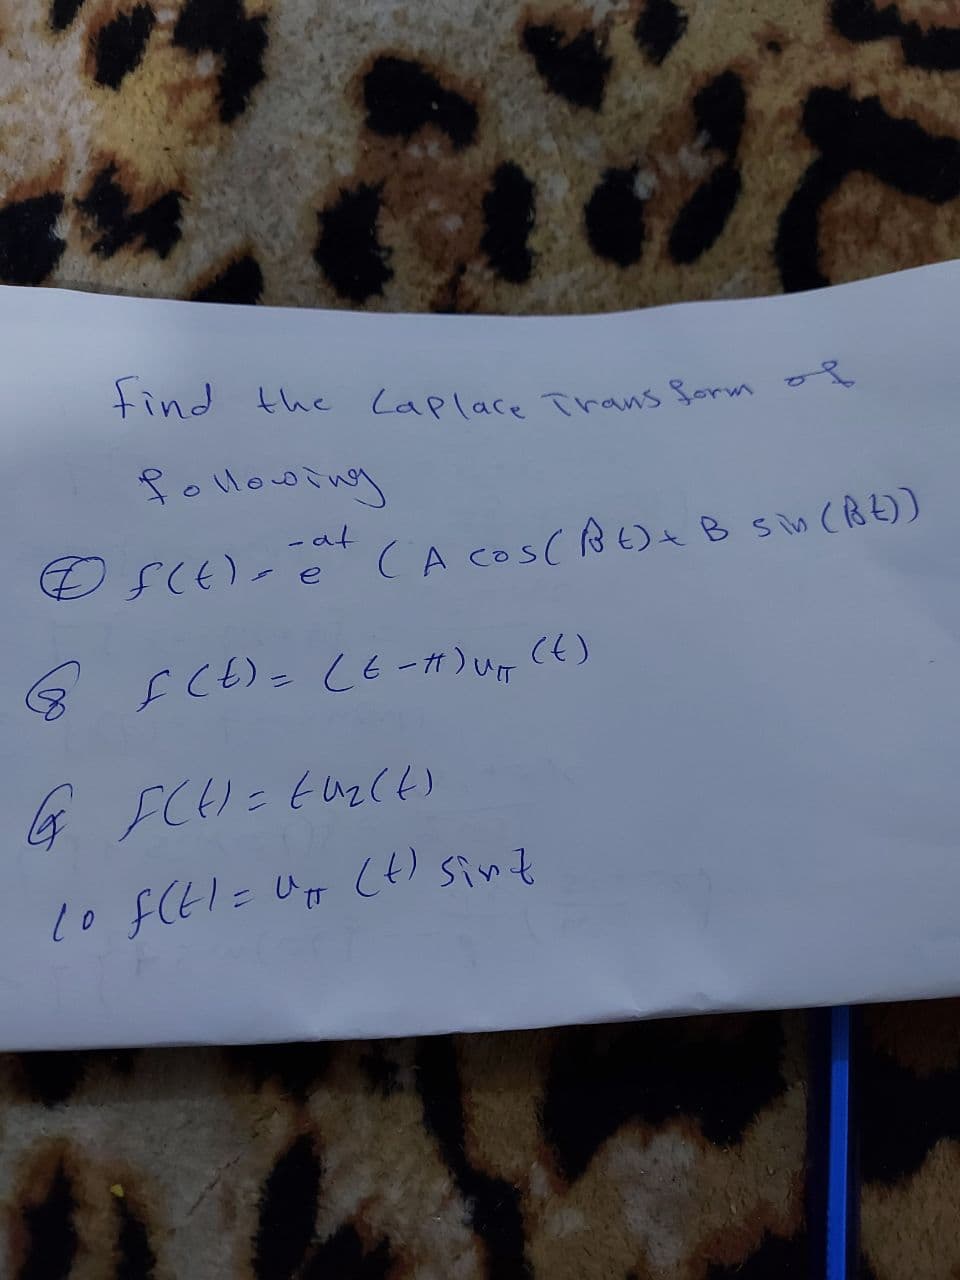 Find the Laplace Transform of
following
⑦ f(t) = e^{-at} (A cos(βt) + B sin(βt))
8 f(t) = (t-π)u_π(t)
9 f(t) = tu₂(t)
10 f(t) = u_π(t) sin t